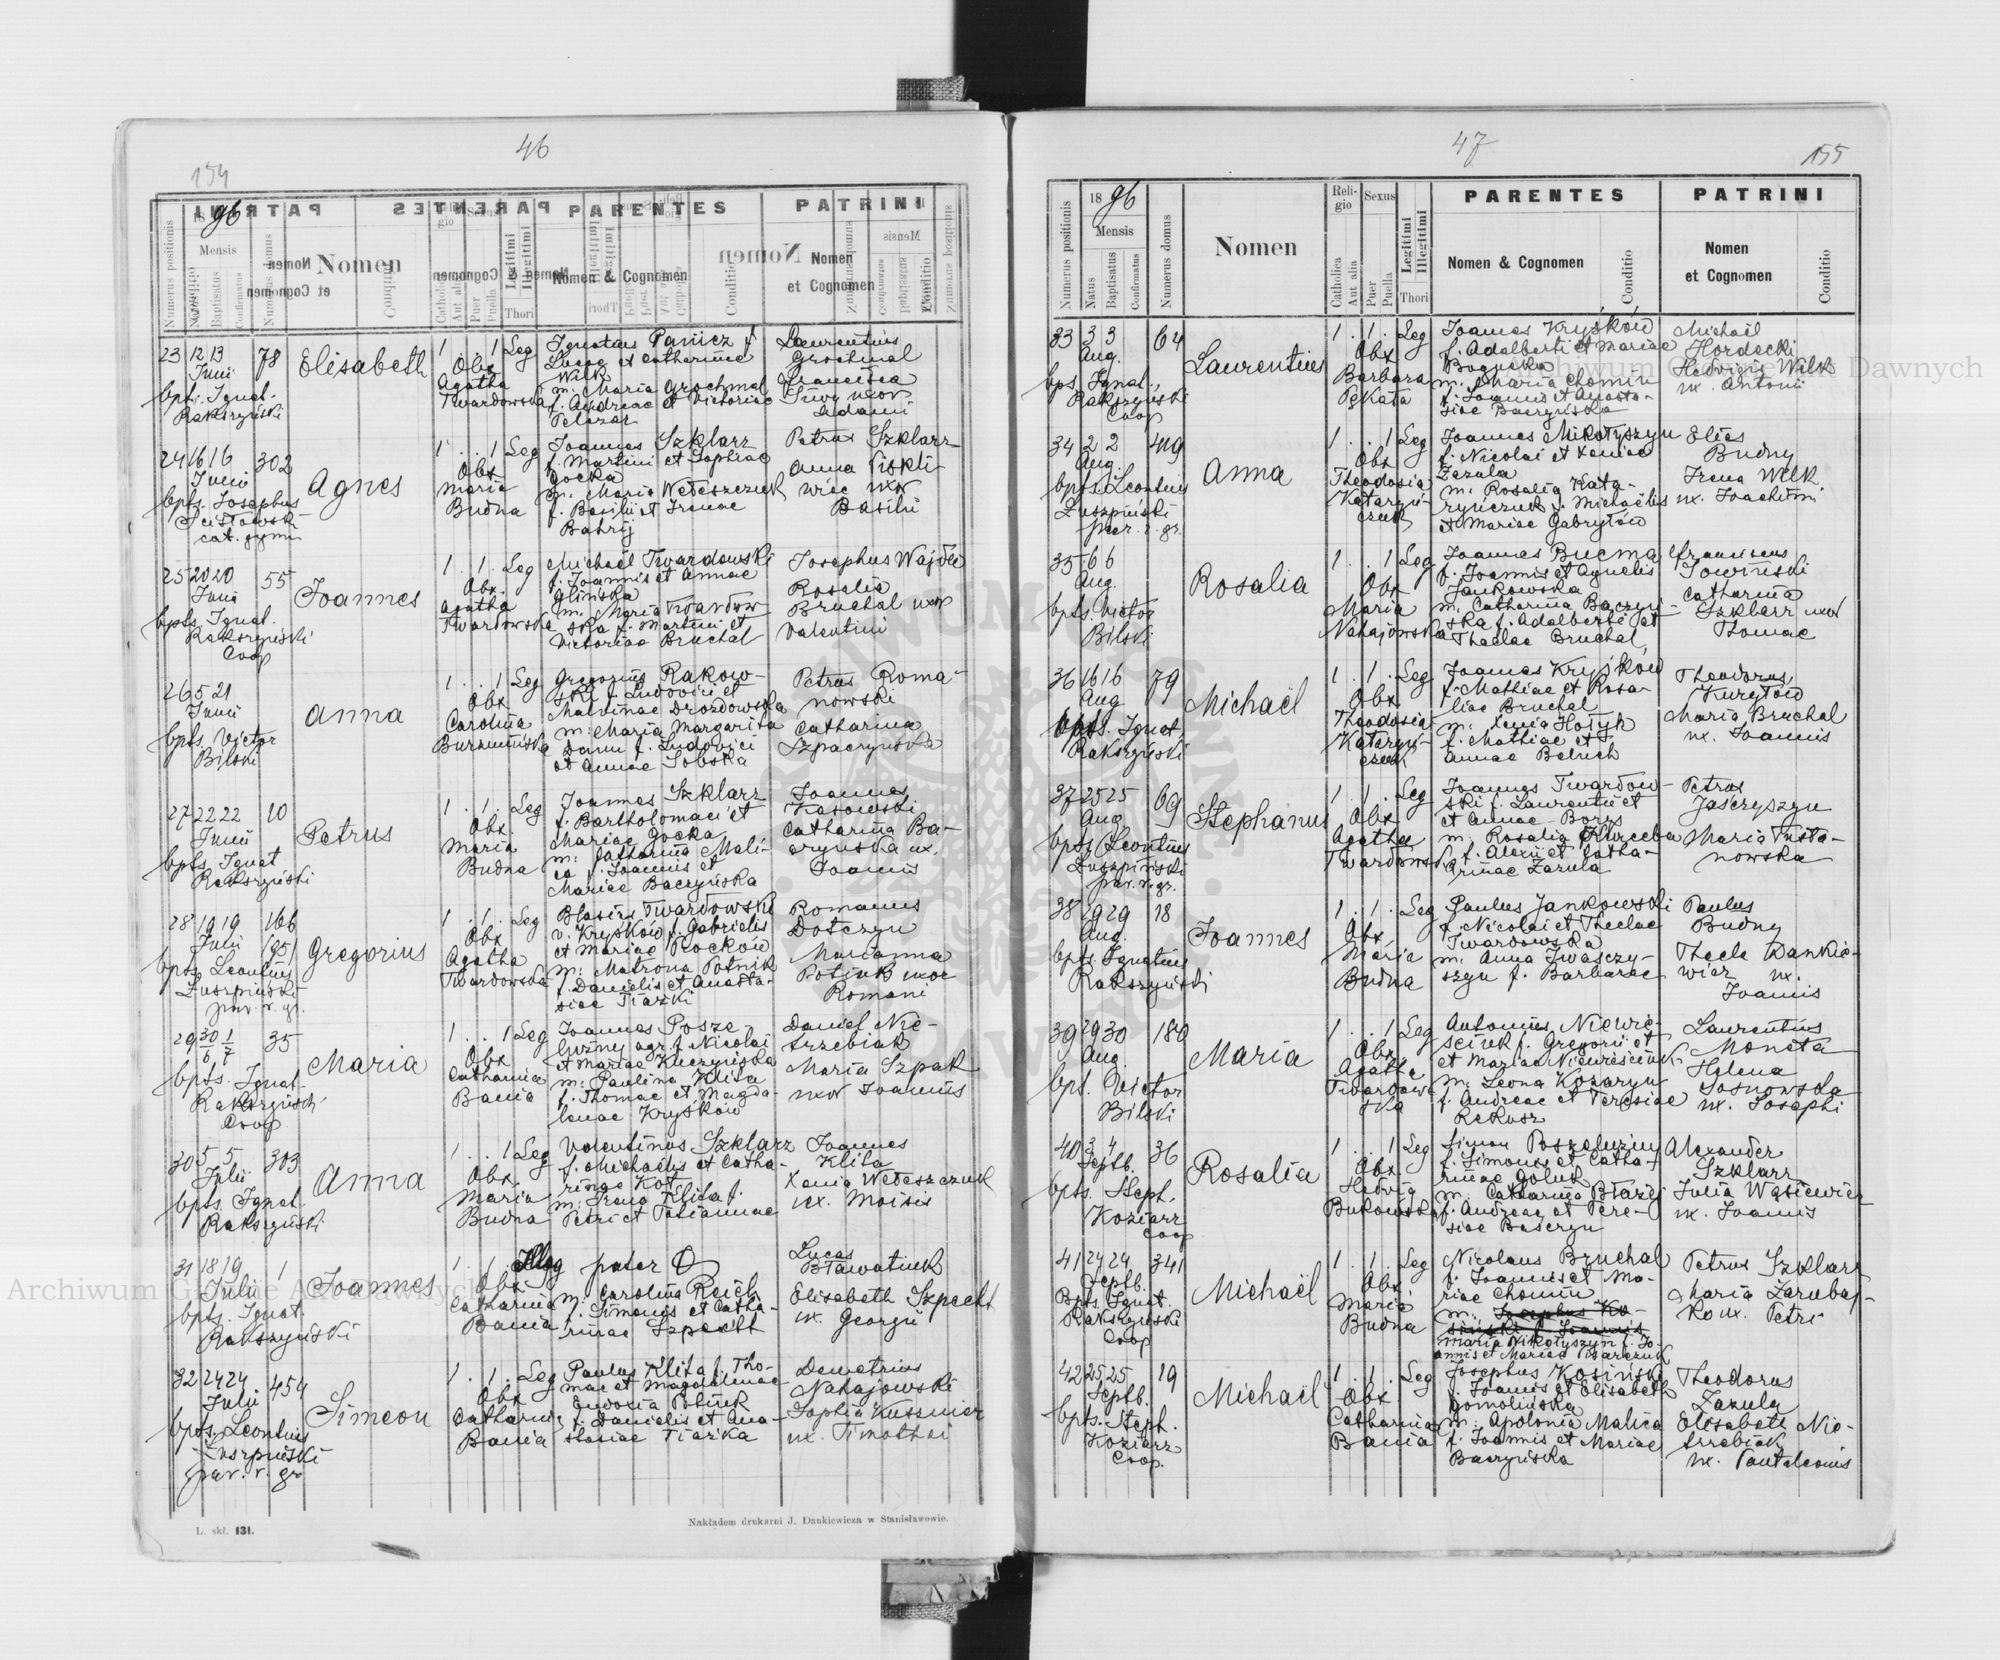 46
154
18 96
PARENTES
PATRINI
Numerus positionis
Mensis
Baptisatus
Confirmatus
Nomen
Catholica
Aut alia
Puer
Puella
Legitimi
Illegitimi
Thori
Nomen & Cognomen
Conditio
Nomen
et Cognomen
Conditio
23 12 13 Junii 78 Elisabeth 1 1 Leg
Ignatius Panicz f.
Lucae et Catharinae
Wilk
m. Maria Grochmal
f. Andreae et Victoriae
Pelczar
Obx
Agatha
Twardowska
Laurentius
Grochmal
Francisca
uxor
Adami
bpt. Ignat.
Rakszyński
24 16 16 Junii 302 Agnes 1 1 Leg
Joannes Szklarz
f. Martini et Sophiae
Gocka
m. Maria Weteszczuk
f. Basilii et Irenae
Bahrij
Obx
Maria
Budna
Petrus Szklarz
Anna
wicz uxor
Basilii
bpts. Josephus
cat. gymn
25 20 20 Junii 55 Joannes 1 1 Leg
Michaël Twardowski
f. Joannis et Annae
Glinska
m. Maria Twardow-
ska f. Martini et
Victoriae Bruchal
Obx.
Agatha
Twardowska
Josephus Wajda
Rosalia
Bruchal uxor
Valentini
bpts. Ignat.
Rakszyński
Coop
26 5 21 Junii Anna 1 1 Leg
Gregorius Rakow-
ski f. Ludovici et
Malvinae Drozdowska
m. Maria Margarita
f. Ludovici
et Annae Sobska
Obx
Carolina
Petrus Roma-
nowski
Catharina
Szpaczyńska
bpts. Victor
Bilski
27 22 22 Junii 10 Petrus 1 1 Leg
Joannes Szklarz
f. Bartholomaei et
Mariae Gocka
m. Catharina Mali-
ca f. Joannis et
Mariae Baczyńska
Obx.
Maria
Budna
Joannes
Kasowski
Catharina Ba-
czyńska ux.
Joannis
bpts. Ignat
Rakszyński
28 19 19 Julii 166 (95) Gregorius 1 1 Leg
Blasius Twardowski
v. Kryśków f. Gabrielis
et Mariae Rocków
m. Matrona Potnik
f. Danielis et Anasta-
siae Tiazki
Obx
Agatha
Twardowska
Romanus
Dotczyn
Marianna
Potnik uxor
Romani
bpts. Leontius
Luszpiński
par. r. gr.
29 30/6 1/7 35 Maria 1 1 Leg
Joannes Posze-
luzny agr. f. Nicolai
et Mariae Kuczyńska
m. Paulina Klita
f. Thomae et Magda-
lenae Kryśków
Obx
Catharina
Bania
Daniel Nie-
trzebiak
Maria Szpak
uxor Joannis
bpts. Ignat.
Rakszyński
Coop
30 5 5 Julii 303 Anna 1 1 Leg
Valentinus Szklarz
f. Michaelis et Catha-
rinae Kot
m. Irena Klita f.
Petri et Tatiannae
Obx.
Maria
Budna
Joannes
Klita
Xenia Weteszczuk
ux. Moisis
bpts. Ignat.
Rakszyński
31 18 19 Julii 1 Joannes 1 1 Illeg
pater O
m. Carolina Reich
f. Simonis et Catha-
rinae Szpecht
Obx
Catharina
Bania
Lucas
Bławatiuk
Elisabeth Szpecht
ux. Georgii
bpts. Ignat.
Rakszyński
32 24 24 Julii 454 Simeon 1 1 Leg
Paulus Klita f. Tho-
mae et Magdalenae
Eudoxia Polnik
f. Danielis et Ana-
stasiae Tiazka
Obx
Catharina
Bania
Demetrius
Nahajowski
Sophia Kusznier
ux. Timothei
bpts. Leontius
Luszpiński
par. r. gr
L. skł. 131.
Nakładem drukarni J. Dankiewicza w Stanisławowie.
47
155
18 96
Religio
Sexus
PARENTES
PATRINI
Numerus positionis
Mensis
Natus
Baptisatus
Confirmatus
Numerus domus
Nomen
Catholica
Aut alia
Puer
Puella
Legitimi
Illegitimi
Thori
Nomen & Cognomen
Conditio
Nomen
et Cognomen
Conditio
33 3 3 Aug. 64 Laurentius 1 1 Leg
Joannes Kryśków
f. Adalberti et Mariae
m. Maria Chomin
f. Joannis et Anasta-
siae Baczyńska
Obx
Barbara
Michaël
Hordecki
Hedvigis Wilk
ux. Antonii
bps. Ignat.
Rakszyński
Coop
34 2 2 Aug. 419 Anna 1 1 Leg
Joannes Mikołyszyn
f. Nicolai et Xeniae
Zazula
m. Rosalia Kata-
ryńczuk f. Michaëlis
et Mariae Gabrylów
Obx
Theodosia
Kataryń-
czuk
Elias
Budny
Irena Wilk
ux. Joachimi
bpts. Leontius
Luszpiński
par. r. gr.
35 6 6 Aug. Rosalia 1 1 Leg
Joannes Bucma
f. Joannis et Agnetis
Jankowska
m. Catharina Baczyń-
ska f. Adalberti et
Theclae Bruchal
Obx
Maria
Nahajowska
Franciscus
Catharina
Szklarz uxor
Thomae
bpts. Victor
Bilski
36 16 16 Aug 79 Michaël 1 1 Leg
Joannes Kryśków
f. Mathiae et Rosa-
liae Bruchal
m. Xenia Hołyk
f. Mathiae et
Annae Beluch
Obx
Theodosia
Kataryń-
czuk
Theodorus
Kurytów
Maria Bruchal
ux. Joannis
bpts. Ignat.
Rakszyński
37 25 25 Aug 69 Stephanus 1 1 Leg
Joannes Twardow-
ski f. Laurentii et
et Annae Borys
m. Rosalia Kurceba
f. Alexii et Catha-
rinae Zazula
Obx
Agatha
Twardowska
Petrus
Jasczyszyn
Maria Trista-
nowska
bpts. Leontius
Luszpiński
par. r. gr.
38 29 29 Aug. 18 Joannes 1 1 Leg
Paulus Jankowski
f. Nicolai et Theclae
Twardowska
m. Anna Iwasczy-
szyn f. Barbarae
Obx
Maria
Budna
Paulus
Budny
Thecla Dankie-
wicz ux.
Joannis
bpts. Ignatius
Rakszyński
39 29 30 Aug. 180 Maria 1 1 Leg
Antonius Niewie-
sciuk f. Gregorii et
et Mariae Niewiesciuk
m. Leona Kozaryn
f. Andreae et Teresiae
Rekosz
Obx
Agatha
Twardow-
ska
Laurentius
Moneta
Helena
Sosnowska
ux. Josephi
bpt. Victor
Bilski
40 3 4 Septb. 36 Rosalia 1 1 Leg
Simon Poszeluzny
f. Simonis et Catha-
rinae Goluk
m. Catharina Błażej
f. Andreae et Tere-
siae Basczyn
Obx
Hedvig
Bukowska
Alexander
Szklarz
Julia Wąsiewicz
ux. Joannis
bpts. Steph.
Koziarz
Coop
41 24 24 Septb. 341 Michaël 1 1 Leg
Nicolaus Bruchal
f. Joannis et Ma-
riae Chomin
m. Josephus Ko-
siński f. Joannis
Maria Mikołyszyn f. Jo-
annis et Mariae Pisarczuk
Obx
Maria
Budna
Petrus Szklarz
Maria Zarubaj-
ko ux. Petri
Bpts. Ignat.
Rakszyński
Coop
42 25 25 Septb. 19 Michaël 1 1 Leg
Josephus Kosiński
f. Joannis et Elisabeth
Gomolinska
m. Apolonia Malica
f. Joannis et Mariae
Baczyńska
Obx
Catharina
Bania
Theodorus
Zazula
Elisabeth Nie-
trzebiak
ux. Pantaleonis
bpts. Steph.
Koziarz
Coop.
Archiwum Główne Akt Dawnych